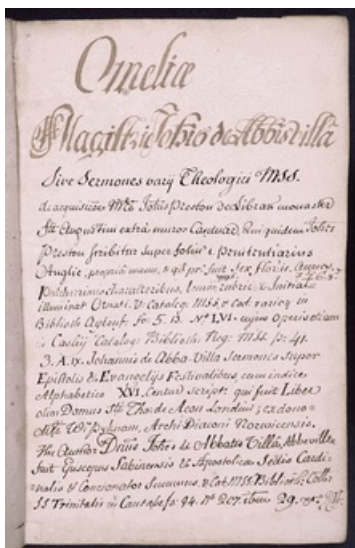 Omeliæ
Magistri Joh'is de Abbisvillâ
Sive Sermones varij Theologici MSS.
de acquisitione Mri. Joh'is Preston de Librar. monaster
Sti. Augustini extrà muros Cantuar. Qui quidem Joh'es
Preston scribitur super folium 1. Penitentiarius
Angliæ, propriâ manu, & qd pr. fuit, sex floris. Aureos,
Pulcherrimis characteribus, & Initialib
illuminat Ornati. V. Catalog. MSS. & Cat. rarior. in
Biblioth Aylouf. fo. 5. is. No. LVI. cujus Operis etiam
in Casley Catalog: Biblioth. Reg: MSS. p. 41.
3. A. ix. Johannis de Abba-Villa Sermones super
Epistolis & Evangelijs Festivalibus, cum indice
Alphabetico XVI. Centur. script. qui fuit Liber
olim Domus Sti. Tho. de Acon Londini; ex dono
Mri. Wi. Pyknam, Archi Diaconi Norvicensis.
The Author Dnus Joh'es de Abbatis Villâ, Abbeville
fuit Episcopus Sabinensis & Apostolicæ Sedis Cardi-
nalis & Concionator &c. Cat. MSS. Biblioth. Coll.
SS Trinitatis in Cantab. fo. 94. No. 207. 29.